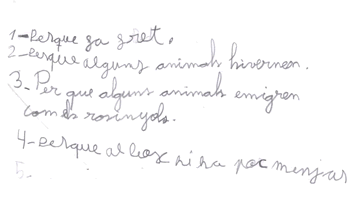 1-Perque fa fret.
2-Perque alguns animals hivernen.
3-Per que alguns animals emigren
com els rosinyols.
4-Perque al bosc ni ha poc menjar
5-